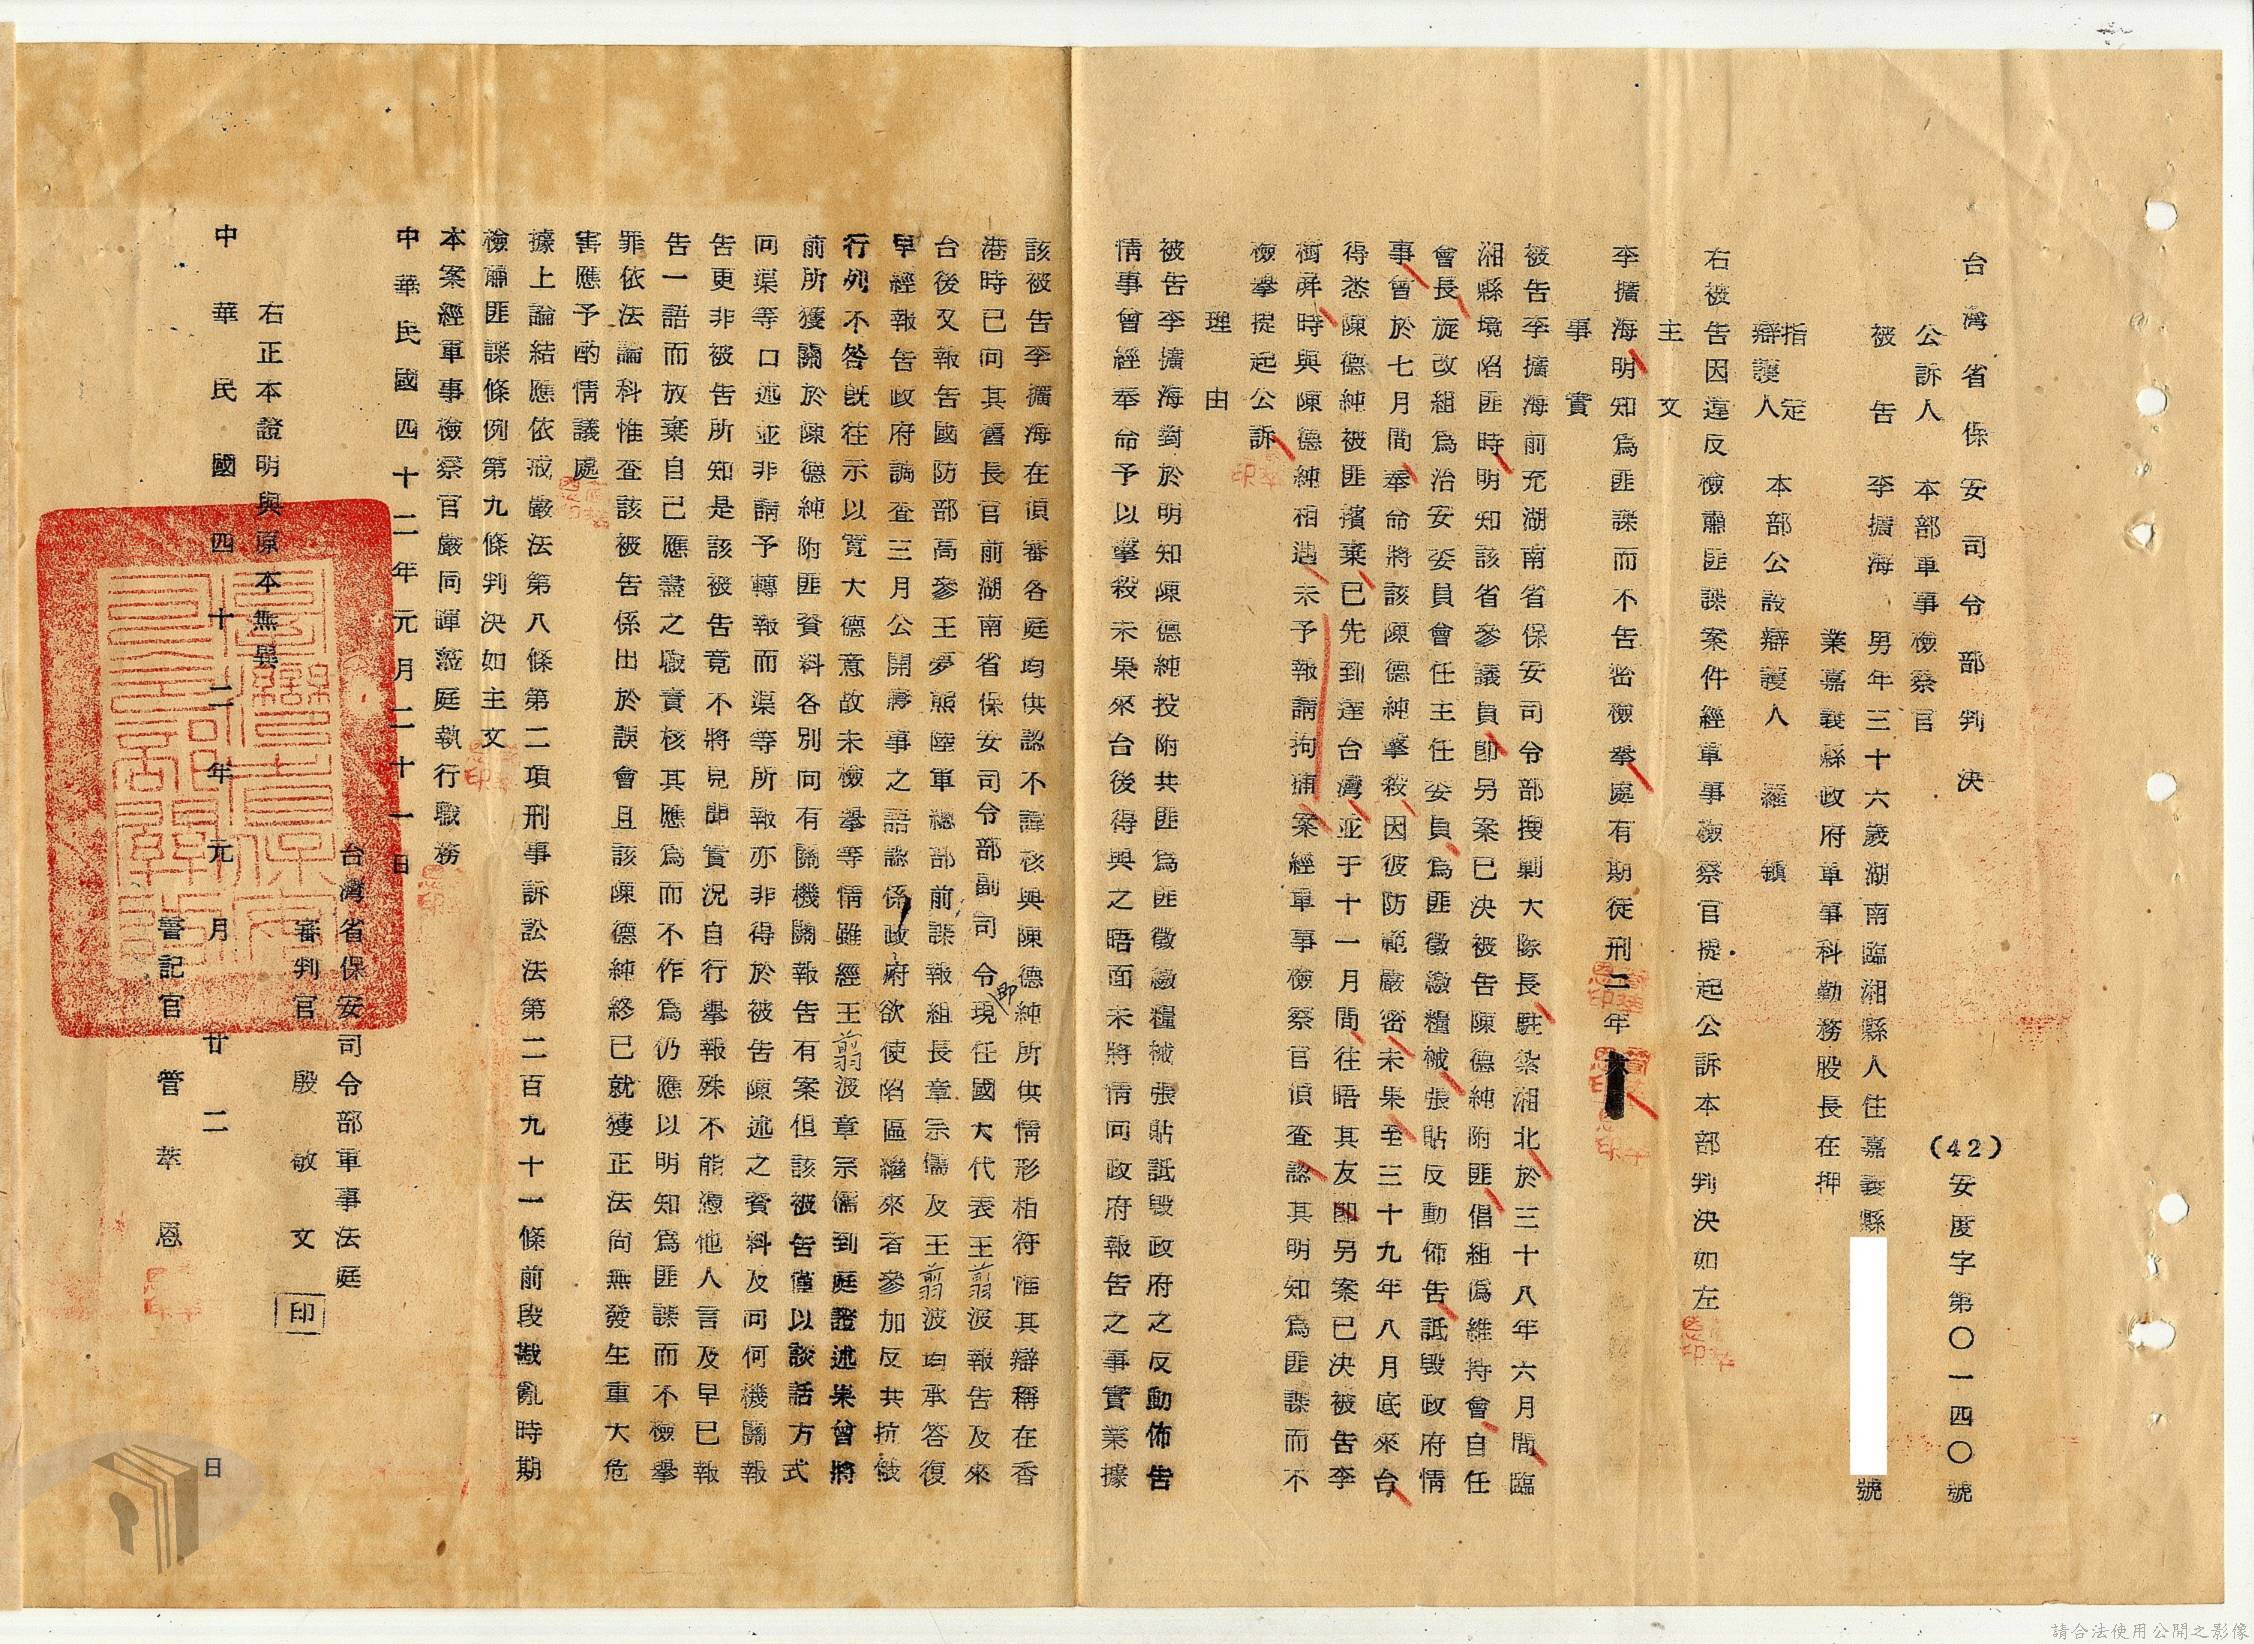 台灣省保安司令部判決
(42)安度字第〇一四〇號
公訴人 本部軍事檢察官
被告 李擴海 男年三十六歲湖南臨湘縣人住嘉義縣 號
業嘉義縣政府軍事科勤務股長在押
指定
辯護人 本部公設辯護人 羅 鎮
右被告因違反檢肅匪諜案件經軍事檢察官提起公訴本部判決如左
主文
李擴海明知為匪諜而不告密檢舉處有期徒刑二年
事實
被告李擴海前充湖南省保安司令部搜剿大隊長駐紮湘北於三十八年六月間臨
湘縣境陷匪時明知該省參議員即另案已決被告陳德純附匪倡組偽維持會自任
會長旋改組為治安委員會任主任委員為匪徵繳糧械張貼反動佈告詆毀政府情
事會於七月間奉命將該陳德純擊殺因彼防範嚴密未果至三十九年八月底來台
得悉陳德純被匪擯棄已先到達台灣並于十一月間往晤其友即另案已決被告李
樹屏時與陳德純相遇未予報請拘捕案經軍事檢察官偵查認其明知為匪諜而不
檢舉提起公訴
理由
被告李擴海對於明知陳德純投附共匪為匪徵繳糧械張貼詆毀政府之反動佈告
情事曾經奉命予以擊殺未果來台後得與之晤面未將情向政府報告之事實業據
該被告李擴海在偵審各庭均供認不諱核與陳德純所供情形相符惟其辯稱在香
港時已向其舊長官前湖南省保安司令部副司令即現任國大代表王翦波報告及來
台後又報告國防部高參王夢熊陸軍總部前諜報組長章宗儒及王翦波均承答復
早經報告政府調查三月公開辦事之語認係政府欲使陷區繼來者參加反共抗俄
行列不咎既往示以寬大德意故未檢舉等情雖經王翦波章宗儒到庭證述果曾將
前所獲關於陳德純附匪資料各別向有關機關報告有案但該被告僅以談話方式
向渠等口述並非請予轉報而渠等所報亦非得於被告陳述之資料及向何機關報
告更非被告所知是該被告竟不將見聞實況自行舉報殊不能憑他人言及早已報
告一語而放棄自己應盡之職責核其應為而不作為仍應以明知為匪諜而不檢舉
罪依法論科惟查該被告係出於誤會且該陳德純終已就獲正法尚無發生重大危
害應予酌情議處
據上論結應依戒嚴法第八條第二項刑事訴訟法第二百九十一條前段戡亂時期
檢肅匪諜條例第九條判決如主文
本案經軍事檢察官嚴同暉蒞庭執行職務
中華民國四十二年元月二十一日
台灣省保安司令部軍事法庭
審判官 殷敬文 印
右正本證明與原本無異
中華民國四十二年元月廿二日
書記官 管萃恩
請合法使用公開之影像